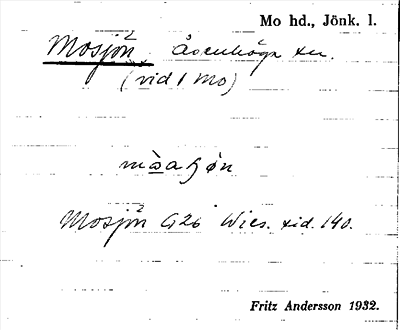 Mo hd., Jönk. l.
Mosjön Åsenhöga sn.
(vid 1 Mo)
Mosjön G26 Wies. tid. 140.
Fritz Andersson 1932.